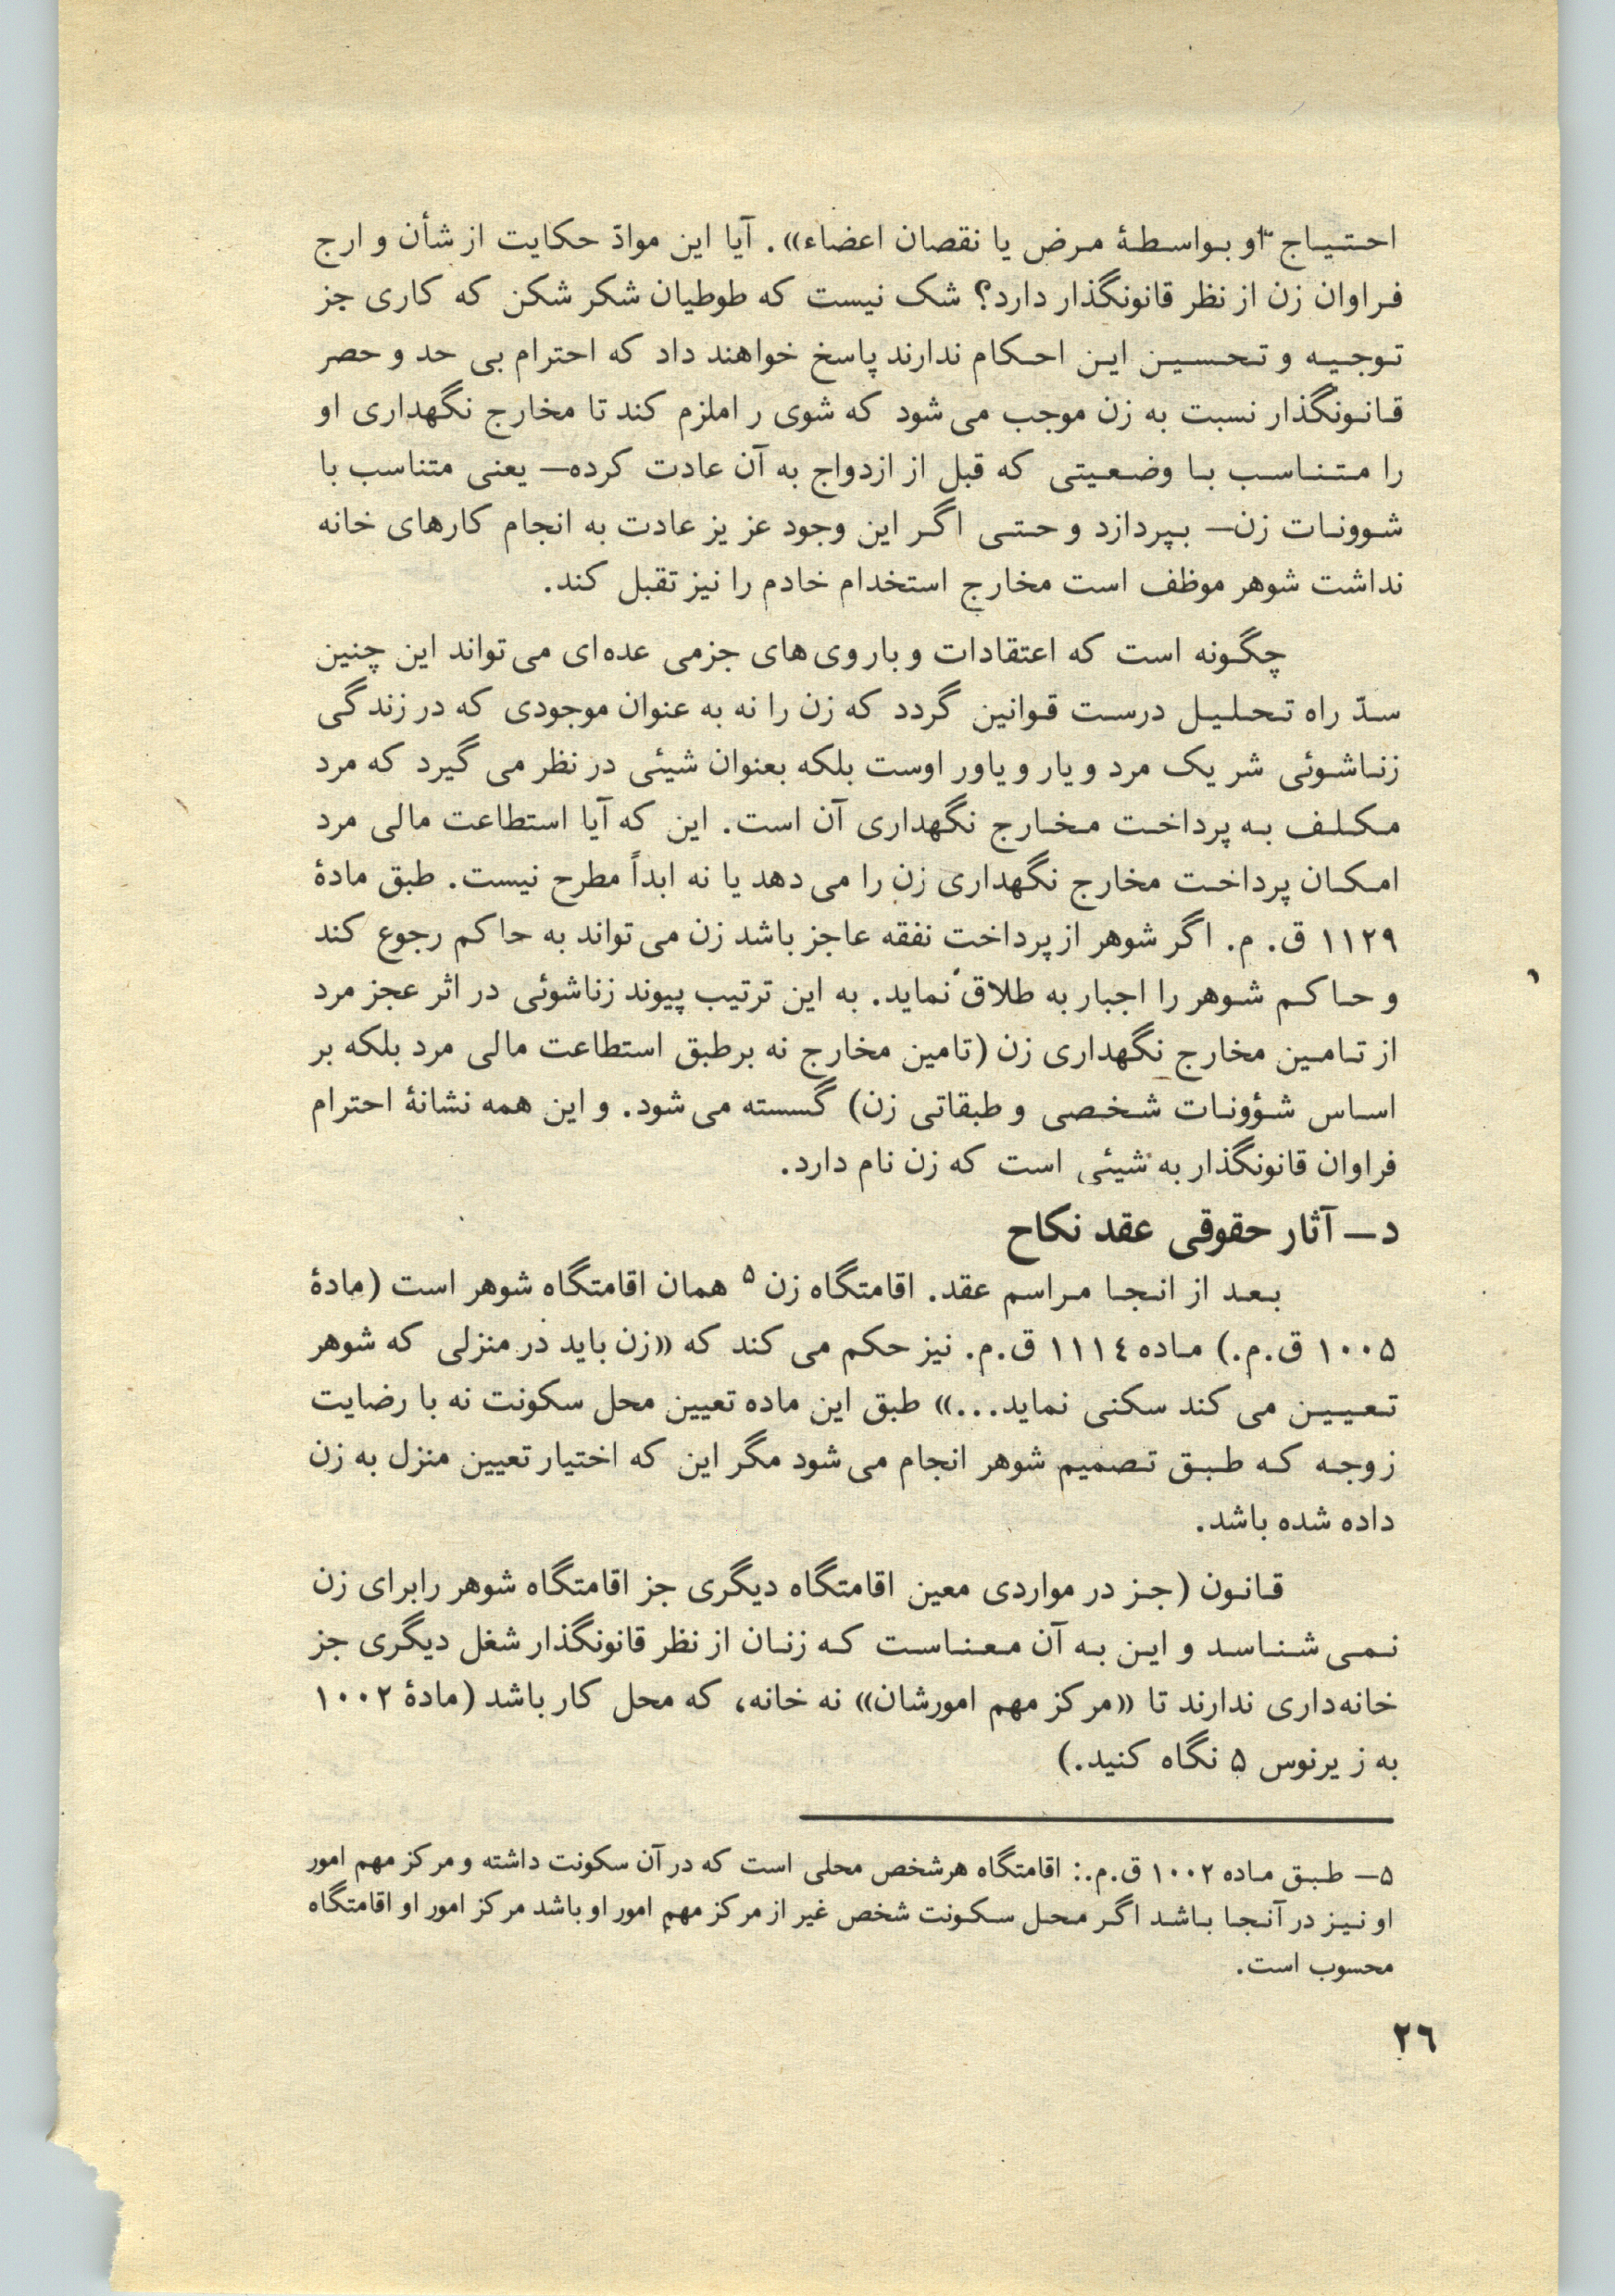 احتیاج او بواسطۀ مرض یا نقصان اعضاء». آیا این موادّ حکایت از شأن و ارج
فراوان زن از نظر قانونگذار دارد؟ شک نیست که طوطیان شکر شکن که کاری جز
توجیه و تحسین این احکام ندارند پاسخ خواهند داد که احترام بی حد و حصر
قانونگذار نسبت به زن موجب می شود که شوی را ملزم کند تا مخارج نگهداری او
را متناسب با وضعیتی که قبل از ازدواج به آن عادت کرده— یعنی متناسب با
شوونات زن— بپردازد و حتی اگر این وجود عزیز عادت به انجام کارهای خانه
نداشت شوهر موظف است مخارج استخدام خادم را نیز تقبل کند.
چگونه است که اعتقادات و باروی‌های جزمی عده‌ای می تواند این چنین
سدّ راه تحلیل درست قوانین گردد که زن را نه به عنوان موجودی که در زندگی
زناشوئی شریک مرد و یار و یاور اوست بلکه بعنوان شیئی در نظر می گیرد که مرد
مکلف به پرداخت مخارج نگهداری آن است. این که آیا استطاعت مالی مرد
امکان پرداخت مخارج نگهداری زن را می دهد یا نه ابداً مطرح نیست. طبق مادۀ
۱۱۲۹ ق. م. اگر شوهر از پرداخت نفقه عاجز باشد زن می تواند به حاکم رجوع کند
و حاکم شوهر را اجبار به طلاق نماید. به این ترتیب پیوند زناشوئی در اثر عجز مرد
از تامین مخارج نگهداری زن (تامین مخارج نه برطبق استطاعت مالی مرد بلکه بر
اساس شؤونات شخصی و طبقاتی زن) گسسته می شود. و این همه نشانۀ احترام
فراوان قانونگذار به شیئی است که زن نام دارد.
د— آثار حقوقی عقد نکاح
بعد از انجا مراسم عقد. اقامتگاه زن ۵ همان اقامتگاه شوهر است (مادۀ
۱۰۰۵ ق.م.) ماده ۱۱۱٤ ق.م. نیز حکم می کند که «زن باید در منزلی که شوهر
تعیین می کند سکنی نماید...» طبق این ماده تعیین محل سکونت نه با رضایت
زوجه که طبق تصمیم شوهر انجام می شود مگر این که اختیار تعیین منزل به زن
داده شده باشد.
قانون (جز در مواردی معین اقامتگاه دیگری جز اقامتگاه شوهر رابرای زن
نمی شناسد و این به آن معناست که زنان از نظر قانونگذار شغل دیگری جز
خانه‌داری ندارند تا «مرکز مهم امورشان» نه خانه، که محل کار باشد (مادۀ ۱۰۰۲
به زیرنوس ۵ نگاه کنید.)
۵— طبق ماده ۱۰۰۲ ق.م.: اقامتگاه هرشخص محلی است که در آن سکونت داشته و مرکز مهم امور
او نیز در آنجا باشد اگر محل سکونت شخص غیر از مرکز مهم امور او باشد مرکز امور او اقامتگاه
محسوب است.
۲٦